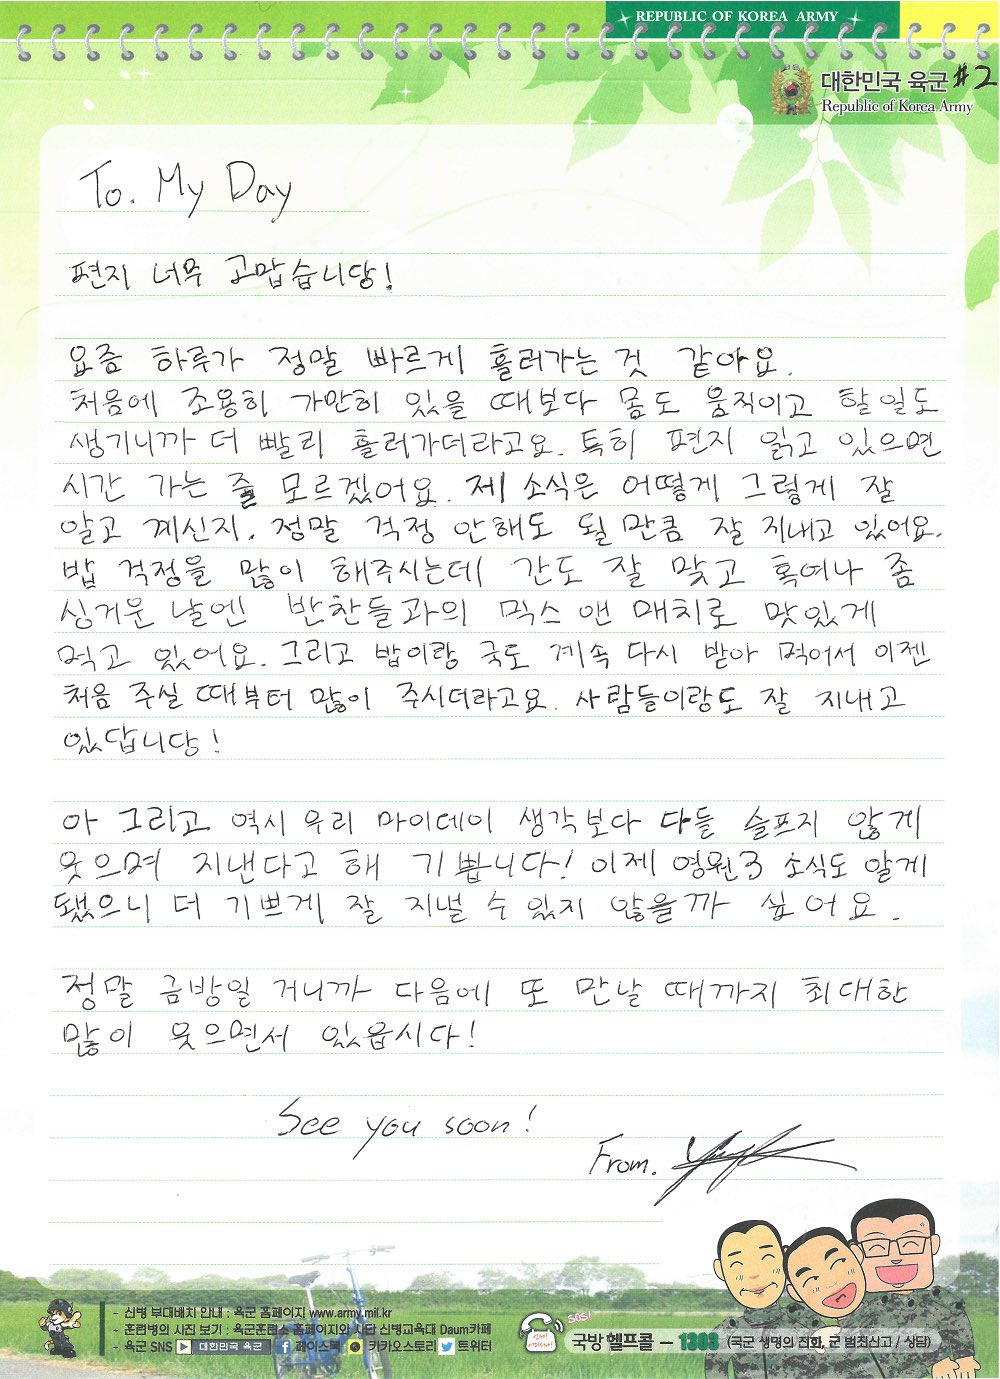 REPUBLIC OF KOREA ARMY
대한민국 육군 #2
Republic of Korea Army
To. My Day
편지 너무 고맙습니당!
요즘 하루가 정말 빠르게 흘러가는 것 같아요.
처음에 조용히 가만히 있을 때보다 몸도 움직이고 할일도
생기니까 더 빨리 흘러가더라고요. 특히 편지 읽고 있으면
시간 가는 줄 모르겠어요. 제 소식은 어떻게 그렇게 잘
알고 계신지. 정말 걱정 안해도 될 만큼 잘 지내고 있어요.
밥 걱정을 많이 해주시는데 간도 잘 맞고 혹여나 좀
싱거운 날엔 반찬들과의 믹스 앤 매치로 맛있게
먹고 있어요. 그리고 밥이랑 국도 계속 다시 받아 먹어서 이젠
처음 주실 때부터 많이 주시더라고요. 사람들이랑도 잘 지내고
있답니당!
아 그리고 역시 우리 마이데이 생각보다 다들 슬프지 않게
웃으며 지낸다고 해 기쁩니다! 이제 영원3 소식도 알게
됐으니 더 기쁘게 잘 지낼 수 있지 않을까 싶어요.
정말 금방일 거니까 다음에 또 만날 때까지 최대한
많이 웃으면서 있읍시다!
See you soon!
From.
- 신병 부대배치 안내 : 육군 홈페이지 www.army.mil.kr
- 훈련병의 사진 보기 : 육군훈련소 홈페이지와 사단 신병교육대 Daum카페
- 육군 SNS 대한민국 육군 페이스북 카카오스토리 트위터
SOS!
국방헬프콜 - 1303 (국군 생명의 전화, 군 범죄신고 / 상담)